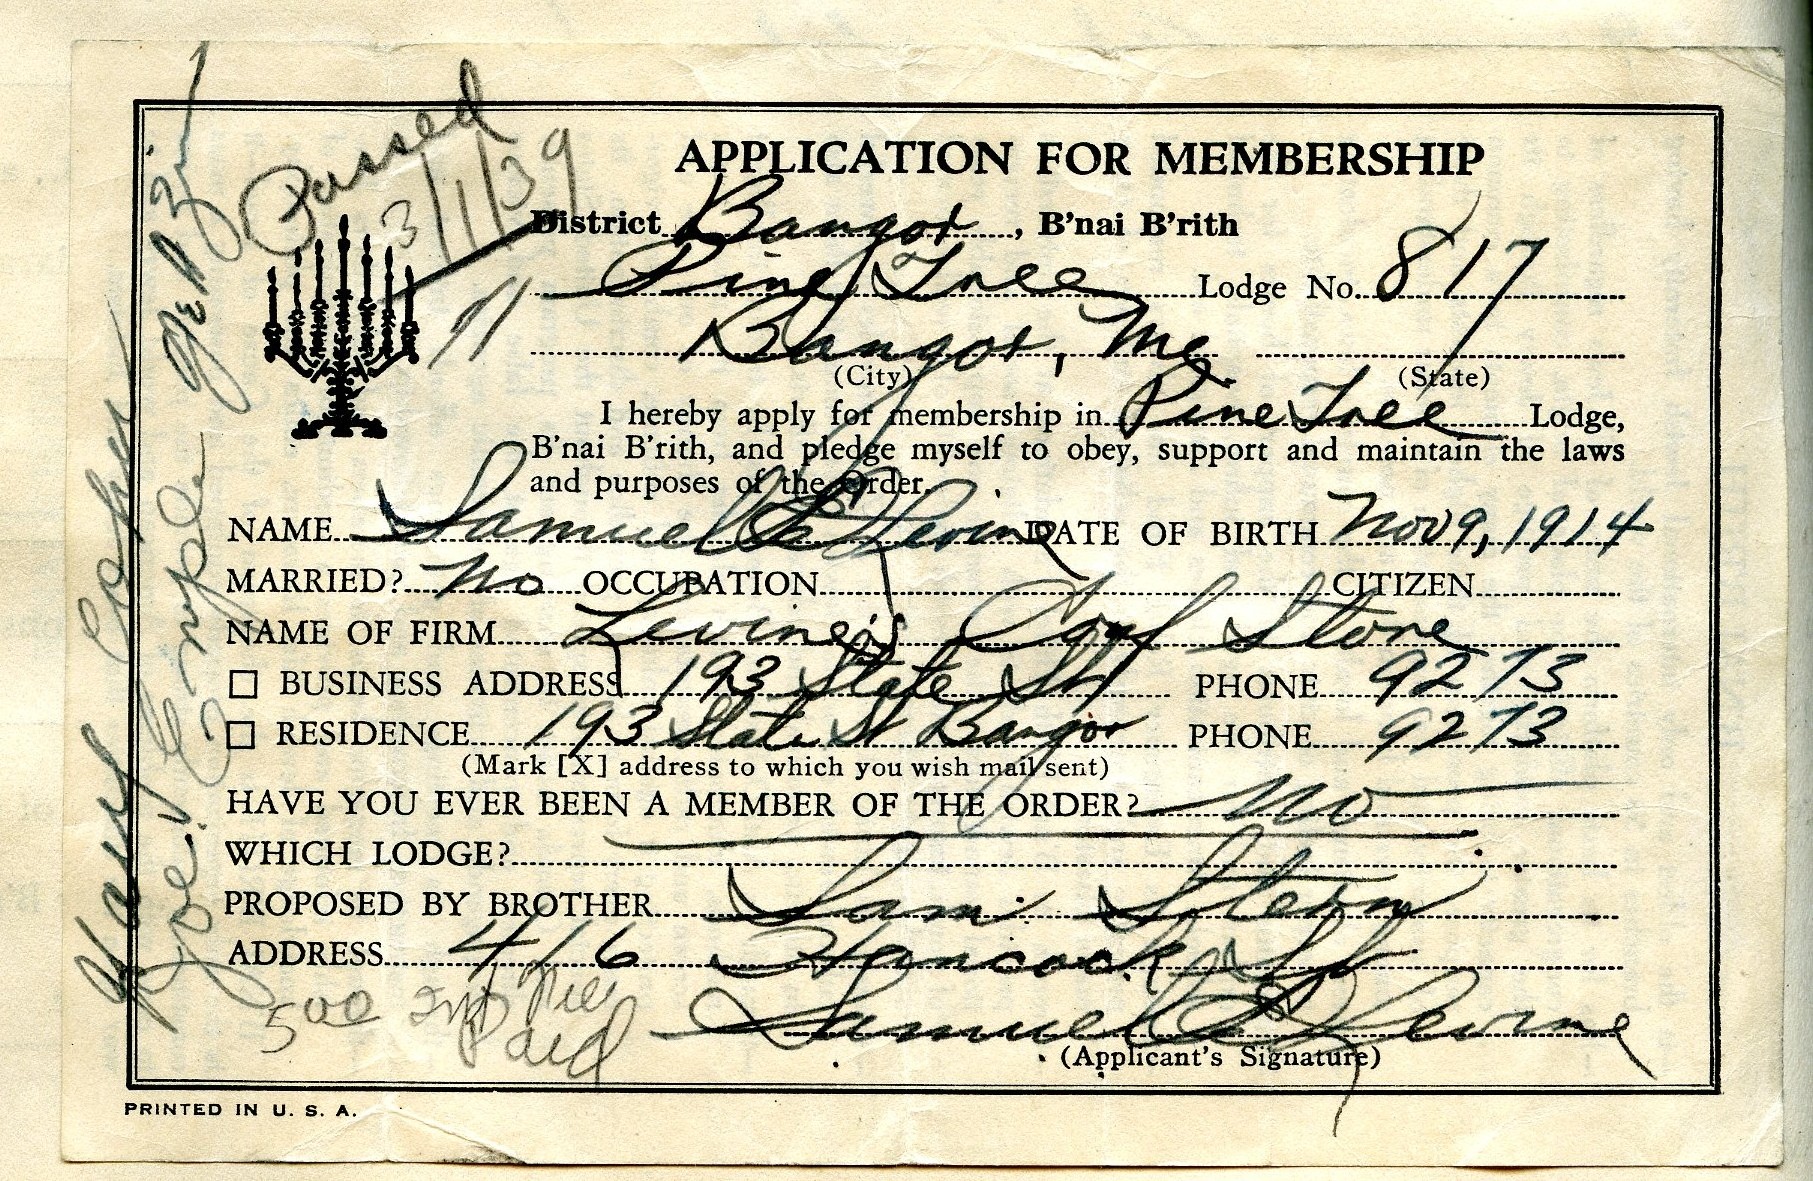 Passed
3/1/39
APPLICATION FOR MEMBERSHIP
District Bangor, B'nai B'rith
Pine Tree Lodge No. 817
Bangor, Me
(City) (State)
I hereby apply for membership in Pine Tree Lodge,
B'nai B'rith, and pledge myself to obey, support and maintain the laws
and purposes of the order.
NAME Samuel Levine DATE OF BIRTH Nov 9, 1914
MARRIED? No OCCUPATION CITIZEN
NAME OF FIRM Levine's Conf Store
BUSINESS ADDRESS 193 State St PHONE 9273
RESIDENCE 193 State St Bangor PHONE 9273
(Mark [X] address to which you wish mail sent)
HAVE YOU EVER BEEN A MEMBER OF THE ORDER? No
WHICH LODGE?
PROPOSED BY BROTHER Sam Stern
ADDRESS 416 Hancock St
500 Paid
Samuel Levine
(Applicant's Signature)
PRINTED IN U. S. A.